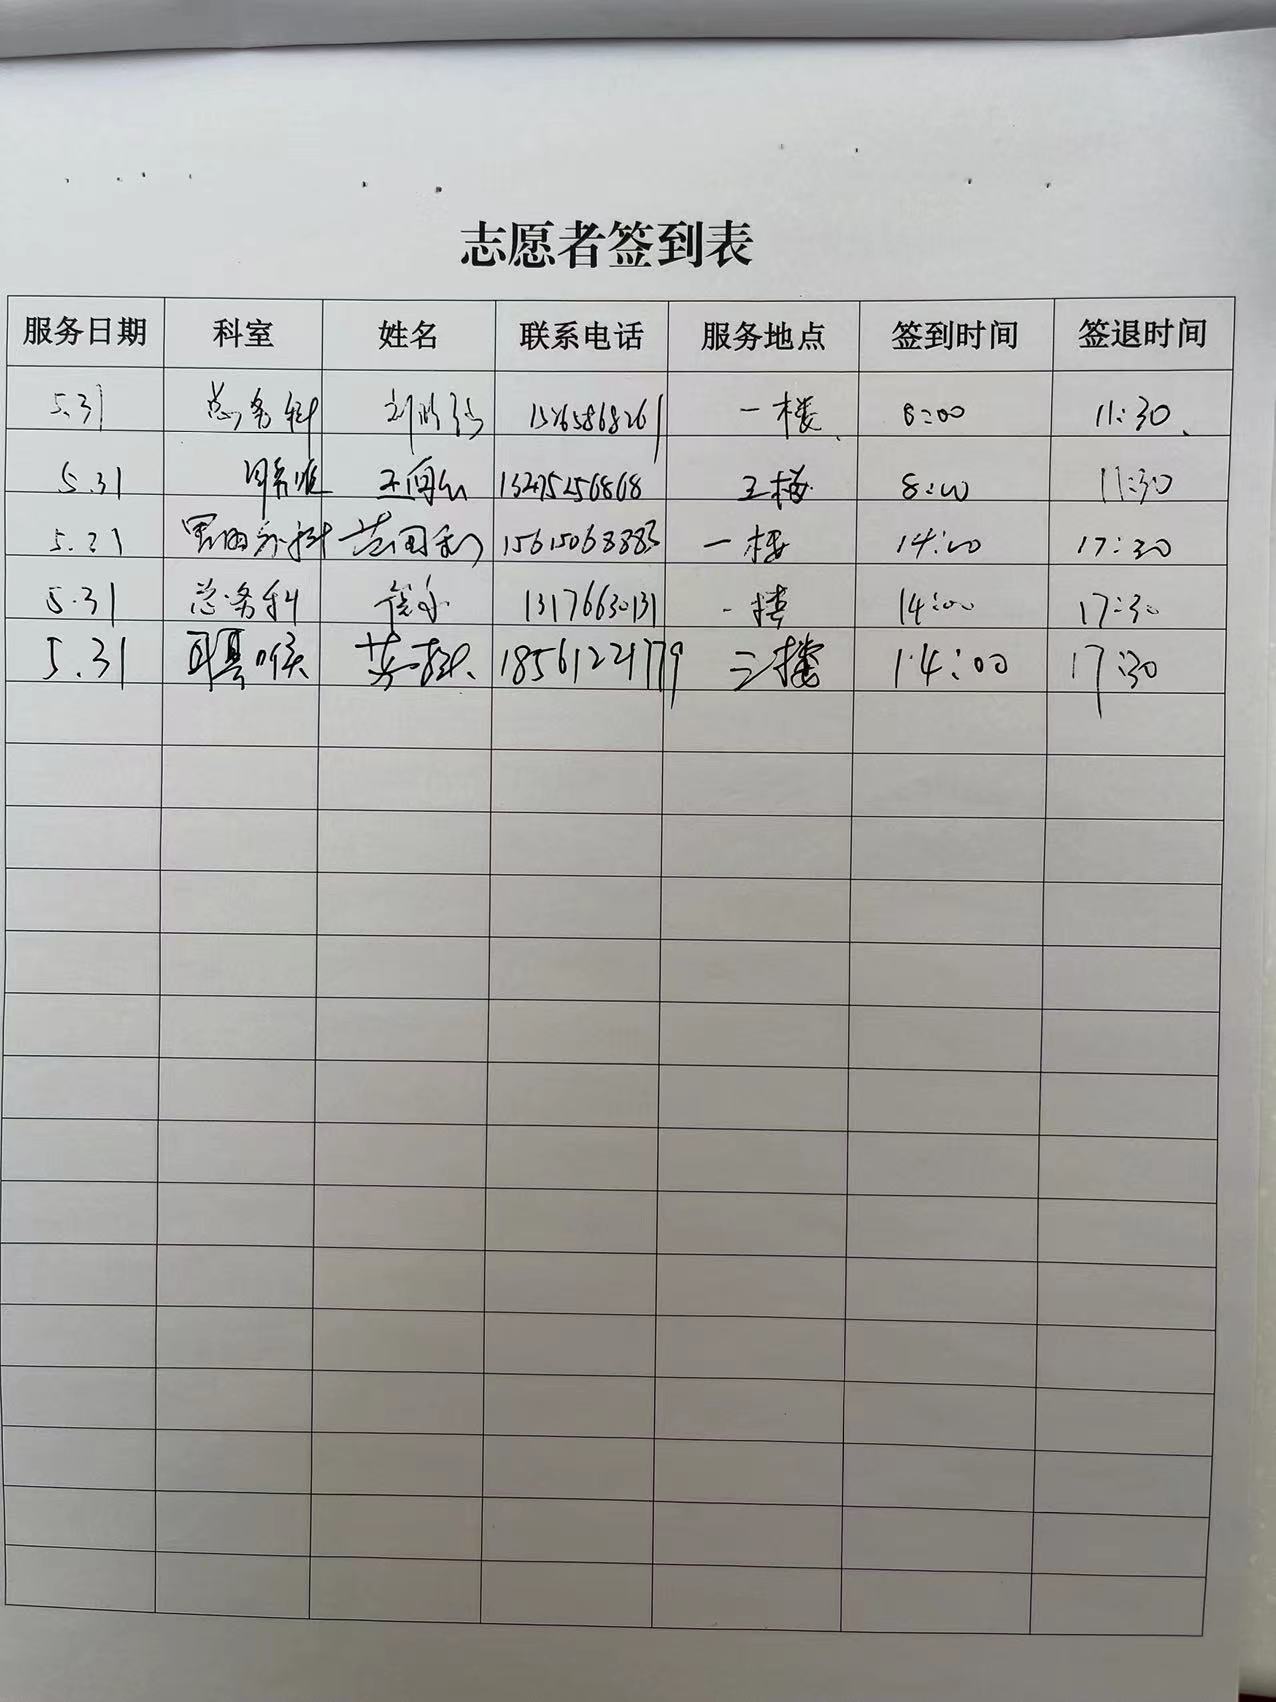 志愿者签到表
服务日期 科室 姓名 联系电话 服务地点 签到时间 签退时间
5.31 总务科 15765868261 一楼 8:00 11:30
5.31 13475256868 三楼 8:00 11:30
5.31 15615068883 一楼 14:00 17:30
5.31 总务科 13176630131 一楼 14:00 17:30
5.31 耳鼻喉 18561221779 三楼 14:00 17:30